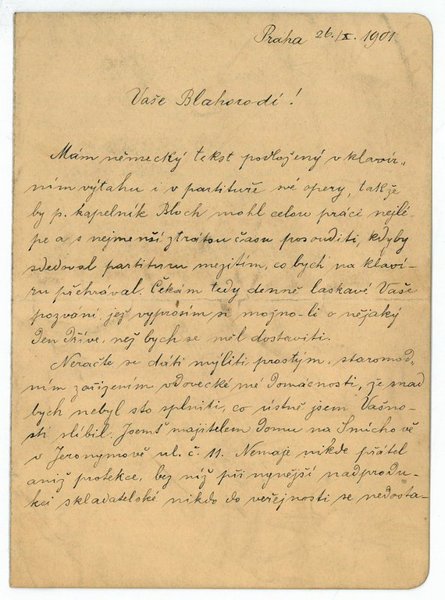 Praha 26./X. 1901
Vaše Blahorodí!
Mám německý tekst podložený v klavír„
ním výtahu i v partituře mé opery, takže
by p. kapelník Bloch mohl celou práci nejlé
pe a s nejmenší ztrátou času posouditi, kdyby
sledoval partituru mezitím, co bych na klaví-
ru přehrával. Čekám tedy denně laskavé Vaše
pozvání, jež vyprosím si možno-li o nějaký
den dříve, než bych se měl dostaviti.
Neračte se dáti mýliti prostým, staromód,
ním zařízením vdovecké mé domácnosti, že snad
bych nebyl sto splniti, co ústně jsem Vašno-
sti slíbil. Jsemť majitelem domu na Smíchově
v Jeronymově ul. č. 11. Nemaje nikde přátel
aniž protekce, bez níž při nynější nadprodu-
kci skladatelské nikdo do veřejnosti se nedosta-